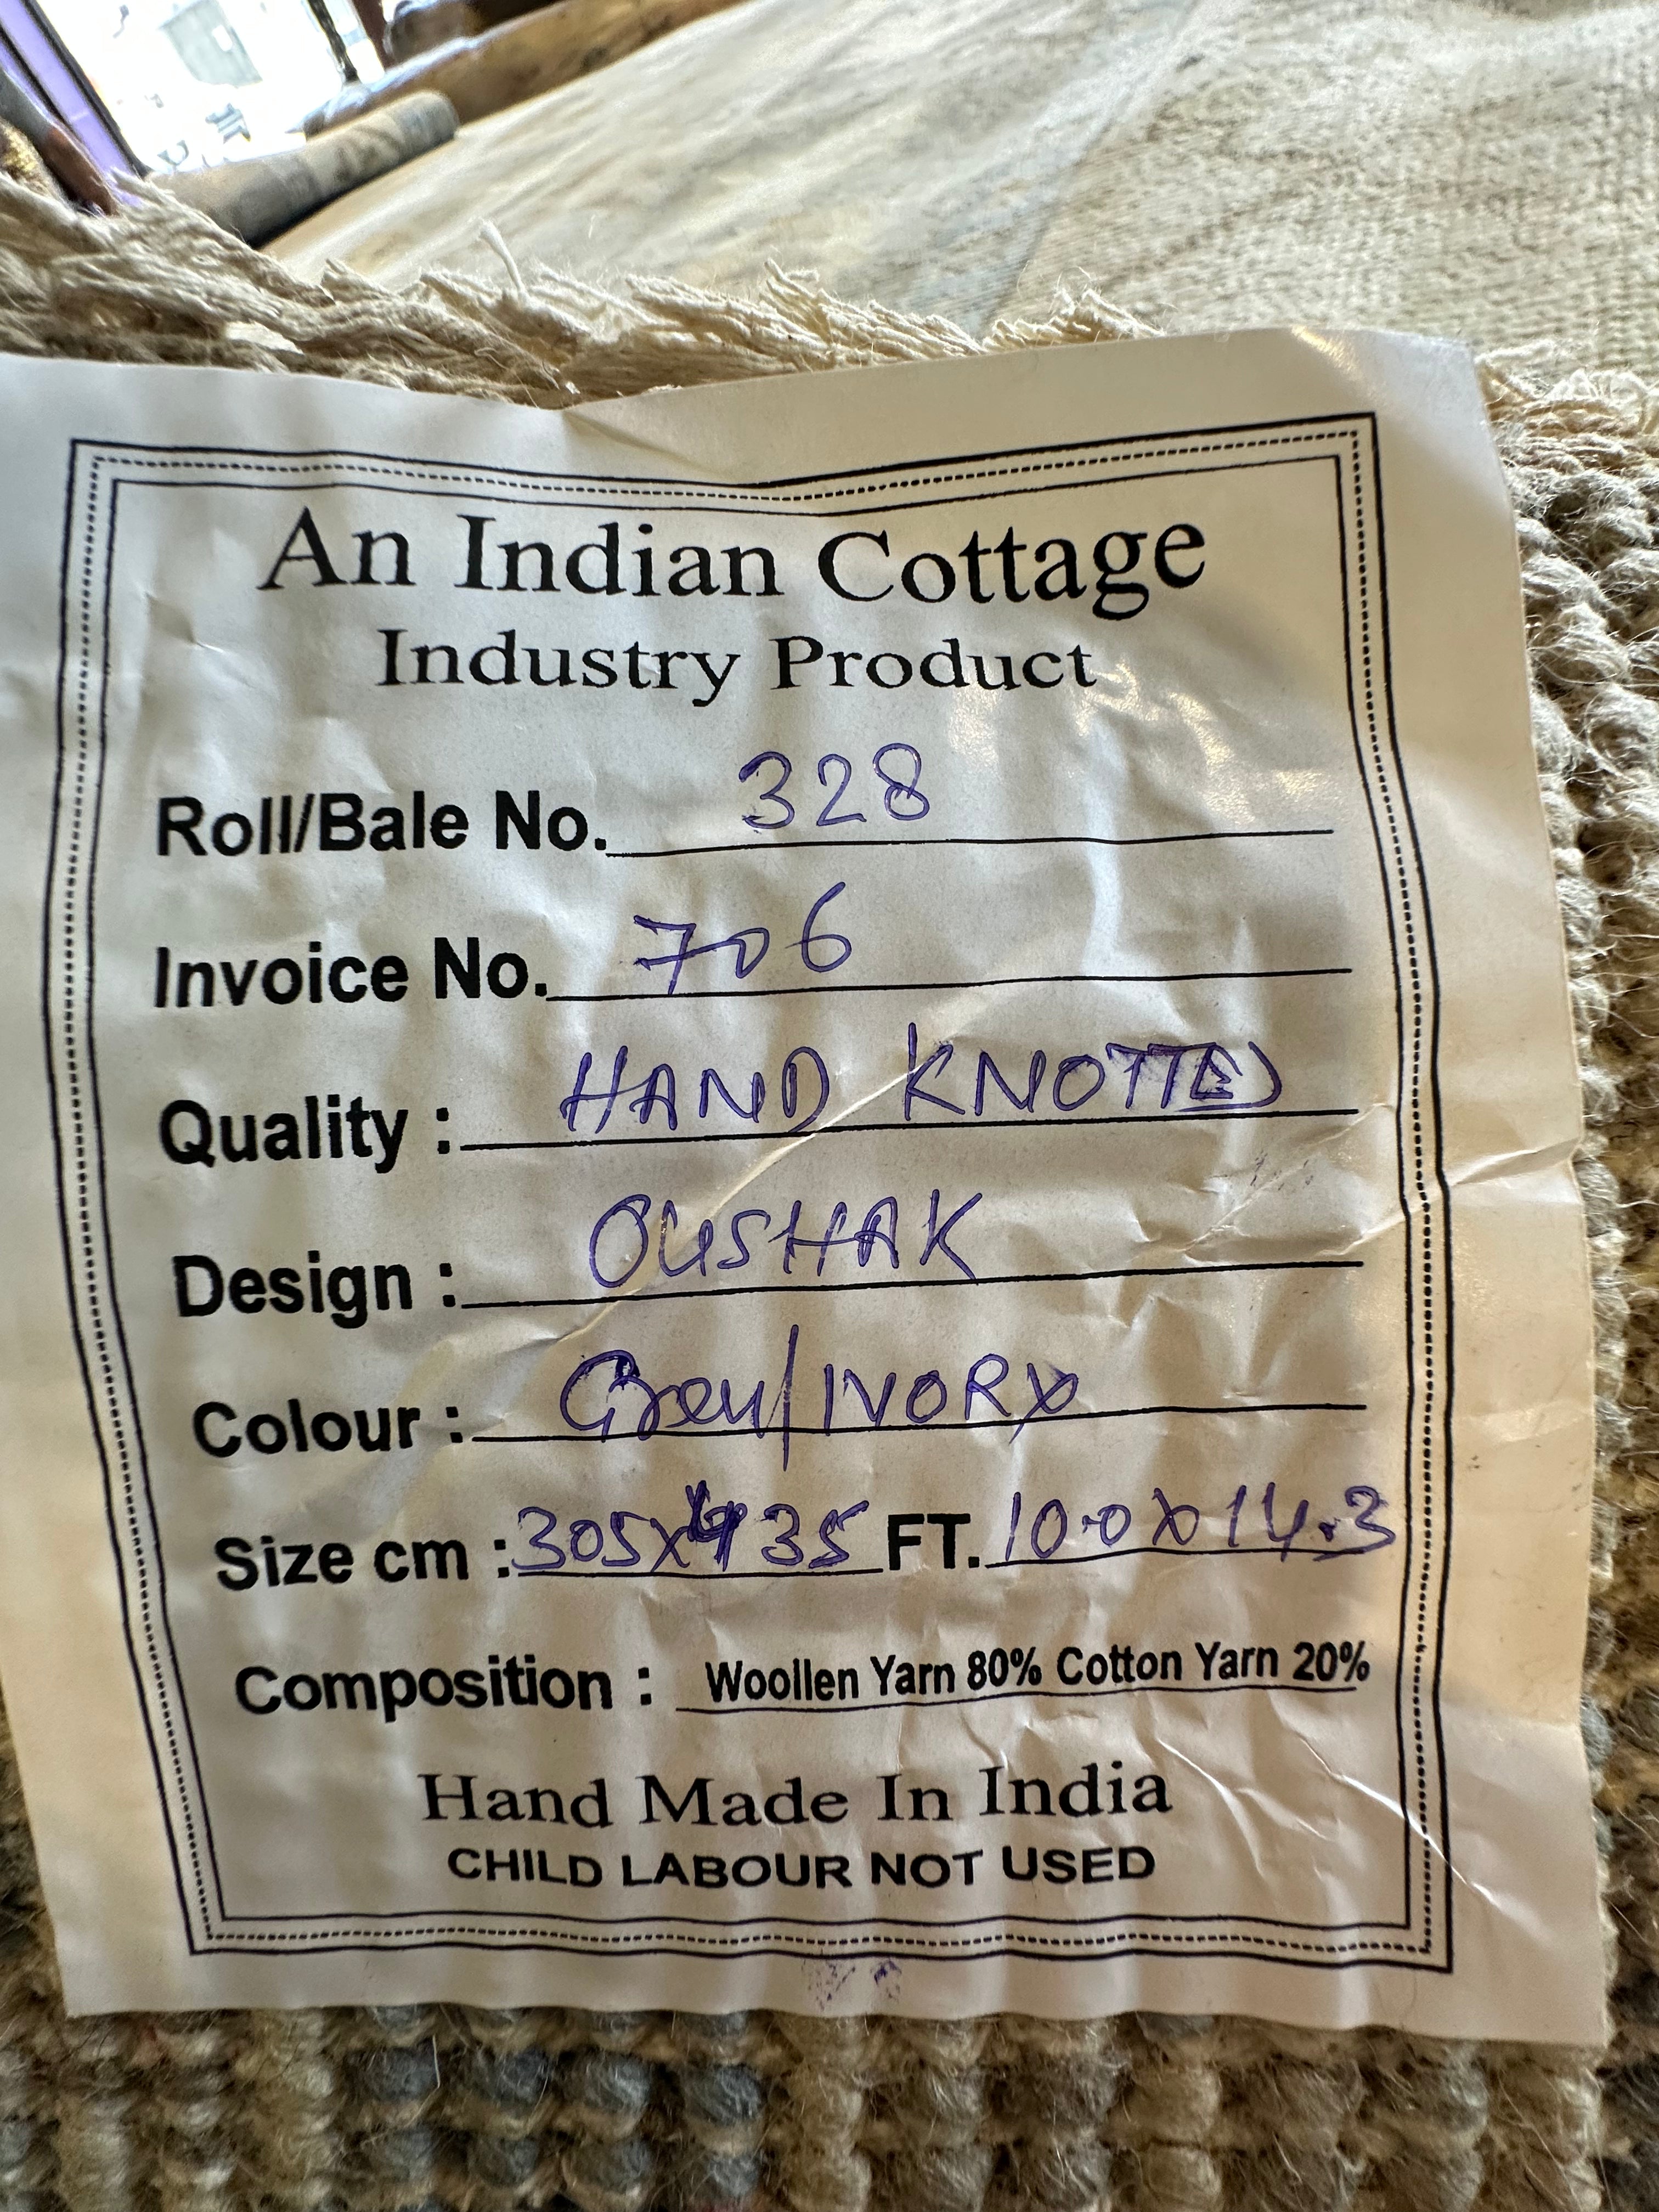 An Indian Cottage
Industry Product
Roll/Bale No. 328
Invoice No. 706
Quality : HAND KNOTTED
Design : OUSHAK
Colour : Grey/IVORY
Size cm : 305x435 FT. 10.0x14.3
Composition : Woollen Yarn 80% Cotton Yarn 20%
Hand Made In India
CHILD LABOUR NOT USED